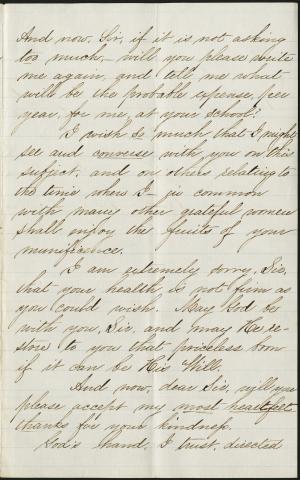 And now, Sir, if it is not asking
too much,– will you please write
me again, and tell me what
will be the probable expense, per
year, for me, at your school?
I wish so much that I might
see and converse with you on this
subject, and on others relating to
the time when I – in common
with many other grateful women
shall enjoy the fruits of your
munificence.
I am extremely sorry, Sir,
that your health is not firm as
you could wish. May God be
with you, Sir, and may He re-
store to you that priceless boon
if it can be His Will.
And now, dear Sir, will you
please accept my most heartfelt
thanks for your kindness.
God's hand, I trust, directed